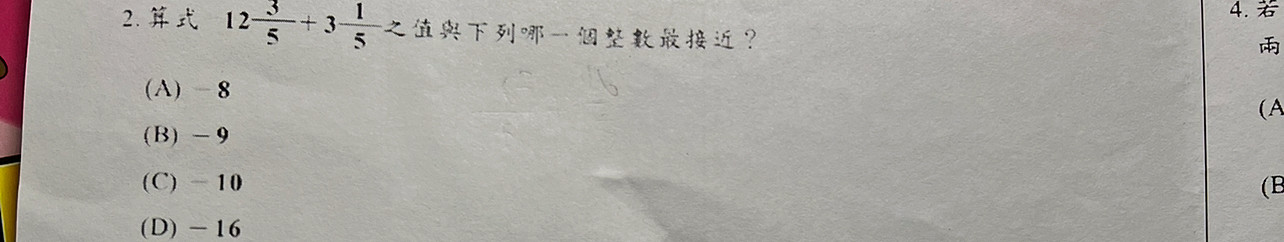 2. 算式 12 3/5 + 3 1/5 之值與下列哪一個整數最接近？
(A) －8
(B) －9
(C) －10
(D) －16
4. 若
兩
(A
(B